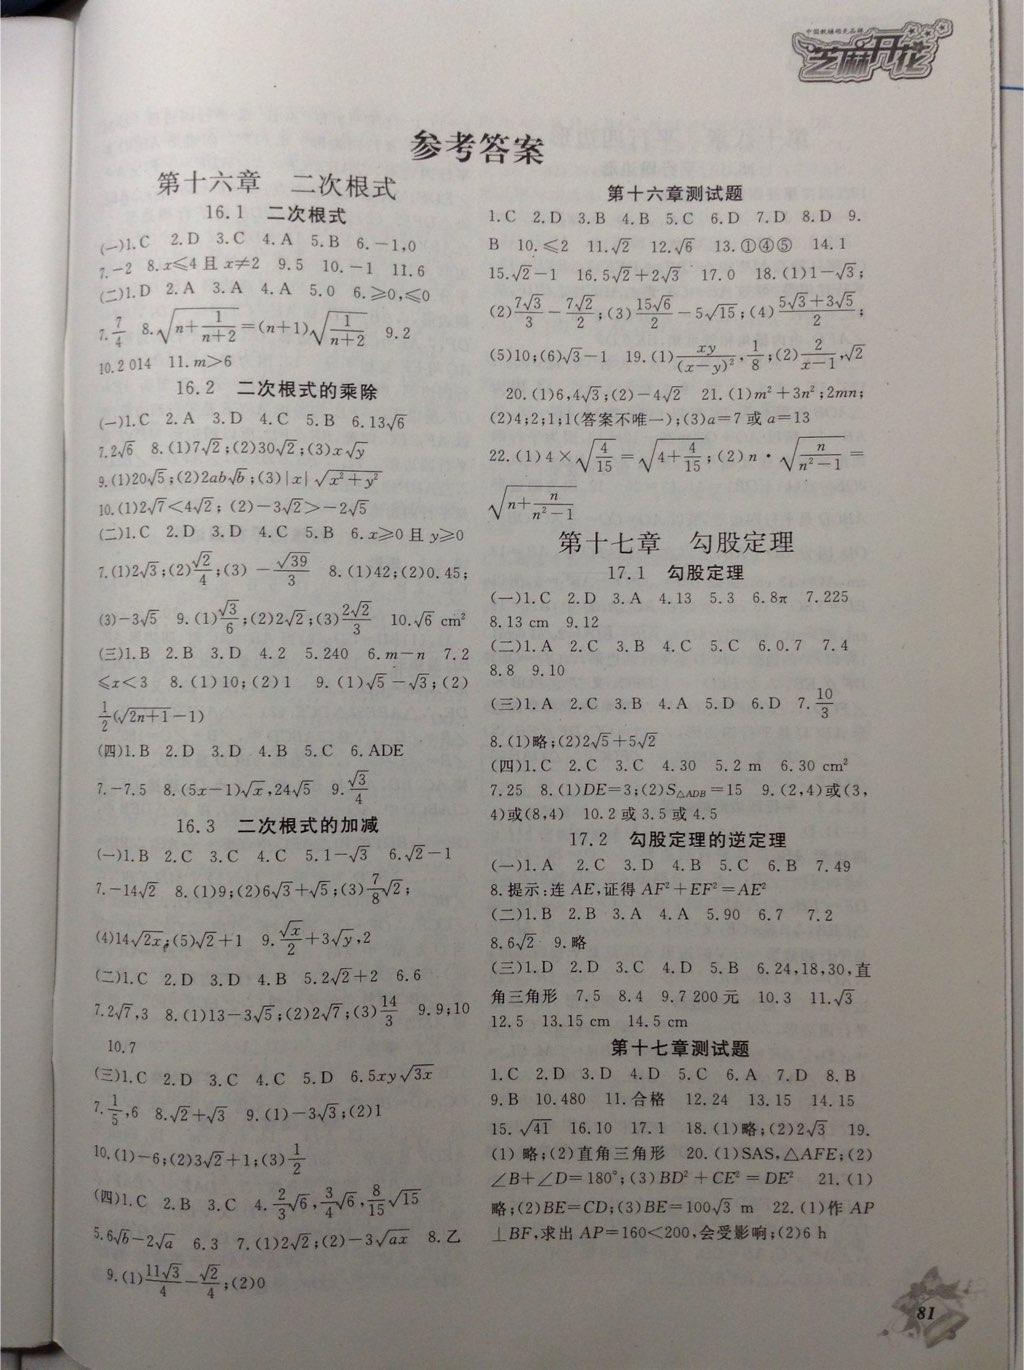 中国教辅领先品牌
芝麻开花
参考答案
第十六章 二次根式
16.1 二次根式
(一)1.C 2.D 3.C 4.A 5.B 6.-1,0
7.-2 8.x≤4且x≠2 9.5 10.-1 11.6
(二)1.D 2.A 3.A 4.A 5.0 6.≥0,≤0
7.7/4 8.√(n+1/(n+2))=(n+1)√(1/(n+2)) 9.2
10.2 014 11.m>6
16.2 二次根式的乘除
(一)1.C 2.A 3.D 4.C 5.B 6.13√6
7.2√6 8.(1)7√2;(2)30√2;(3)x√y
9.(1)20√5;(2)2ab√b;(3)|x|√(x²+y²)
10.(1)2√7<4√2; (2)-3√2>-2√5
(二)1.C 2.D 3.D 4.C 5.B 6.x≥0且y≥0
7.(1)2√3;(2)√2/4;(3) -√39/3 8.(1)42;(2)0.45;
(3)-3√5 9.(1)√3/6;(2)2√2;(3)2√2/3 10.√6 cm²
(三)1.B 2.B 3.D 4.2 5.240 6.m-n 7.2
≤x<3 8.(1)10;(2)1 9.(1)√5-√3;(2)
1/2(√(2n+1)-1)
(四)1.B 2.D 3.D 4.B 5.C 6.ADE
7.-7.5 8.(5x-1)√x,24√5 9.√3/4
16.3 二次根式的加减
(一)1.B 2.C 3.C 4.C 5.1-√3 6.√2-1
7.-14√2 8.(1)9;(2)6√3+√5;(3)7/8√2;
(4)14√(2x);(5)√2+1 9.√x/2+3√y,2
(二)1.C 2.D 3.D 4.B 5.2√2+2 6.6
7.2√7,3 8.(1)13-3√5;(2)2√7;(3)14/3 9.9;10
10.7
(三)1.C 2.D 3.C 4.C 5.D 6.5xy√(3x)
7.1/5,6 8.√2+√3 9.(1)-3√3;(2)1
10.(1)-6;(2)3√2+1;(3)1/2
(四)1.C 2.B 3.C 4.2/3√6,3/4√6,8/15√15
5.6√b-2√a 6.3 7.(1)2√2;(2)-3√(ax) 8.乙
9.(1)11√3/4-√2/4;(2)0
第十六章测试题
1.C 2.D 3.B 4.B 5.C 6.D 7.D 8.D 9.
B 10.≤2 11.√2 12.√6 13.①④⑤ 14.1
15.√2-1 16.5√2+2√3 17.0 18.(1)1-√3;
(2)7√3/3-7√2/2;(3)15√6/2-5√15;(4)(5√3+3√5)/2;
(5)10;(6)√3-1 19.(1)xy/(x-y)²,1/8;(2)2/(x-1),√2
20.(1)6,4√3;(2)-4√2 21.(1)m²+3n²;2mn;
(2)4;2;1;1(答案不唯一);(3)a=7或a=13
22.(1)4×√(4/15)=√(4+4/15);(2)n·√(n/(n²-1))=
√(n+n/(n²-1))
第十七章 勾股定理
17.1 勾股定理
(一)1.C 2.D 3.A 4.13 5.3 6.8π 7.225
8.13 cm 9.12
(二)1.A 2.C 3.B 4.C 5.C 6.0.7 7.4
8.8 9.10
(三)1.A 2.C 3.B 4.A 5.D 6.D 7.10/3
8.(1)略;(2)2√5+5√2
(四)1.C 2.C 3.C 4.30 5.2 m 6.30 cm²
7.25 8.(1)DE=3;(2)S△ADB=15 9.(2,4)或(3,
4)或(8,4) 10.2或3.5或4.5
17.2 勾股定理的逆定理
(一)1.A 2.C 3.D 4.B 5.C 6.B 7.49
8.提示:连AE,证得AF²+EF²=AE²
(二)1.B 2.B 3.A 4.A 5.90 6.7 7.2
8.6√2 9.略
(三)1.D 2.D 3.C 4.D 5.B 6.24,18,30,直
角三角形 7.5 8.4 9.7 200元 10.3 11.√3
12.5 13.15 cm 14.5 cm
第十七章测试题
1.C 2.D 3.D 4.D 5.C 6.A 7.D 8.B
9.B 10.480 11.合格 12.24 13.15 14.15
15.√41 16.10 17.1 18.(1)略;(2)2√3 19.
(1)略;(2)直角三角形 20.(1)SAS,△AFE;(2)
∠B+∠D=180°;(3)BD²+CE²=DE² 21.(1)
略;(2)BE=CD;(3)BE=100√3 m 22.(1)作AP
⊥BF,求出AP=160<200,会受影响;(2)6 h
81